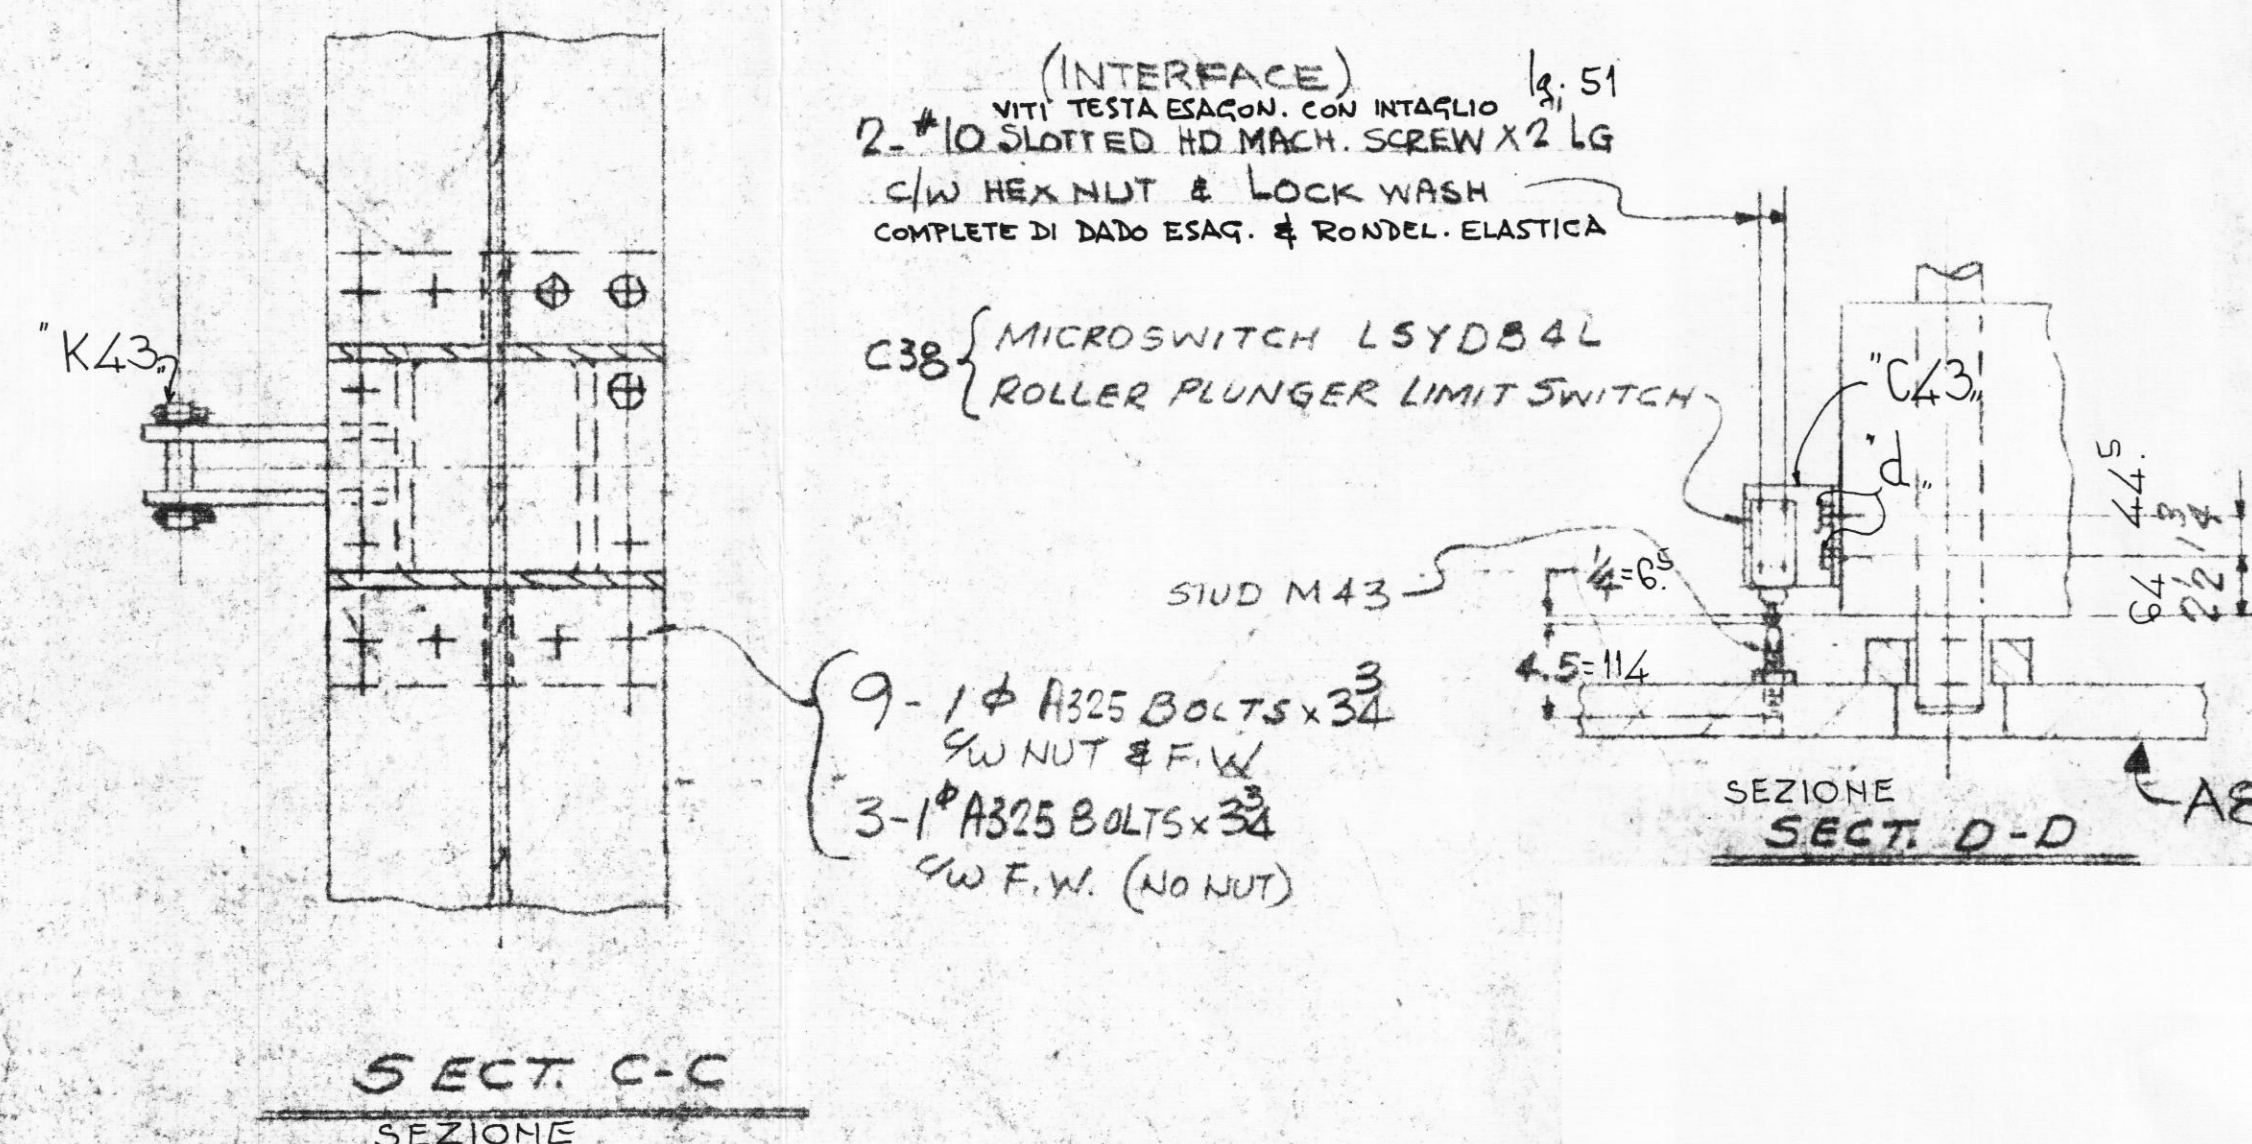 (INTERFACE)
lg. 51
VITI TESTA ESAGON. CON INTAGLIO
2-#10 SLOTTED HD MACH. SCREW X 2" LG
C/W HEX NUT & LOCK WASH
COMPLETE DI DADO ESAG. & RONDEL. ELASTICA
"K43"
C38 { MICROSWITCH LSYDB4L
ROLLER PLUNGER LIMIT SWITCH
"C43"
"d"
44.5
1 3/4
64
2 1/2
STUD M43
1/4=6.5
4.5=114
9 - 1 ф A325 BOLTS x 3 3/4
C/W NUT & F.W
3-1 ф A325 BOLTS x 3 3/4
C/W F.W. (NO NUT)
SEZIONE
SECT. D-D
SECT. C-C
SEZIONE